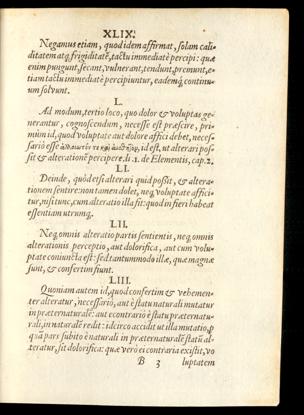 XLIX.
Negamus etiam, quod idem affirmat, solam cali-
ditatem atq; frigiditatē, tactu immediatè percipi: quæ
enim pungunt, secant, vulnerant, tendunt, premunt, e-
tiam tactu immediatè percipiuntur, eademq; continu-
um solvunt.
L.
Ad modum, tertio loco, quo dolor & voluptas ge-
nerantur, cognoscendum, necesse est præscire, pri-
mùm id, quod voluptate aut dolore affici debet, neces-
sariò esse ἀλλοιωτόν τε καὶ αἰσθητικὸν, id est, ut alterari pos-
sit & alterationē percipere. li. 1. de Elementis, cap. 2.
LI.
Deinde, quòd etsi alterari quid possit, & altera-
tionem sentire: non tamen dolet, neq; voluptate affici-
tur, nisi tunc, cum alteratio illa fit: quod in fieri habeat
essentiam utrumq.
LII.
Neq; omnis alteratio partis sentientis, neq; omnis
alterationis perceptio, aut dolorifica, aut cum volu-
ptate coniuncta est: sed tantummodo illæ, quæ magnæ
sunt, & confertim fiunt.
LIII.
Quoniam autem id, quod confertim & vehemen-
ter alteratur, necessariò, aut è statu naturali mutatur
in præternaturalē: aut econtrariò è statu præternatu-
rali, in naturalē redit: idcirco accidit ut illa mutatio, p
quā pars subitò è naturali in præternaturalē statū al-
teratur, sit dolorifica: quæ verò ei contraria existit, vo
B 3 luptatem